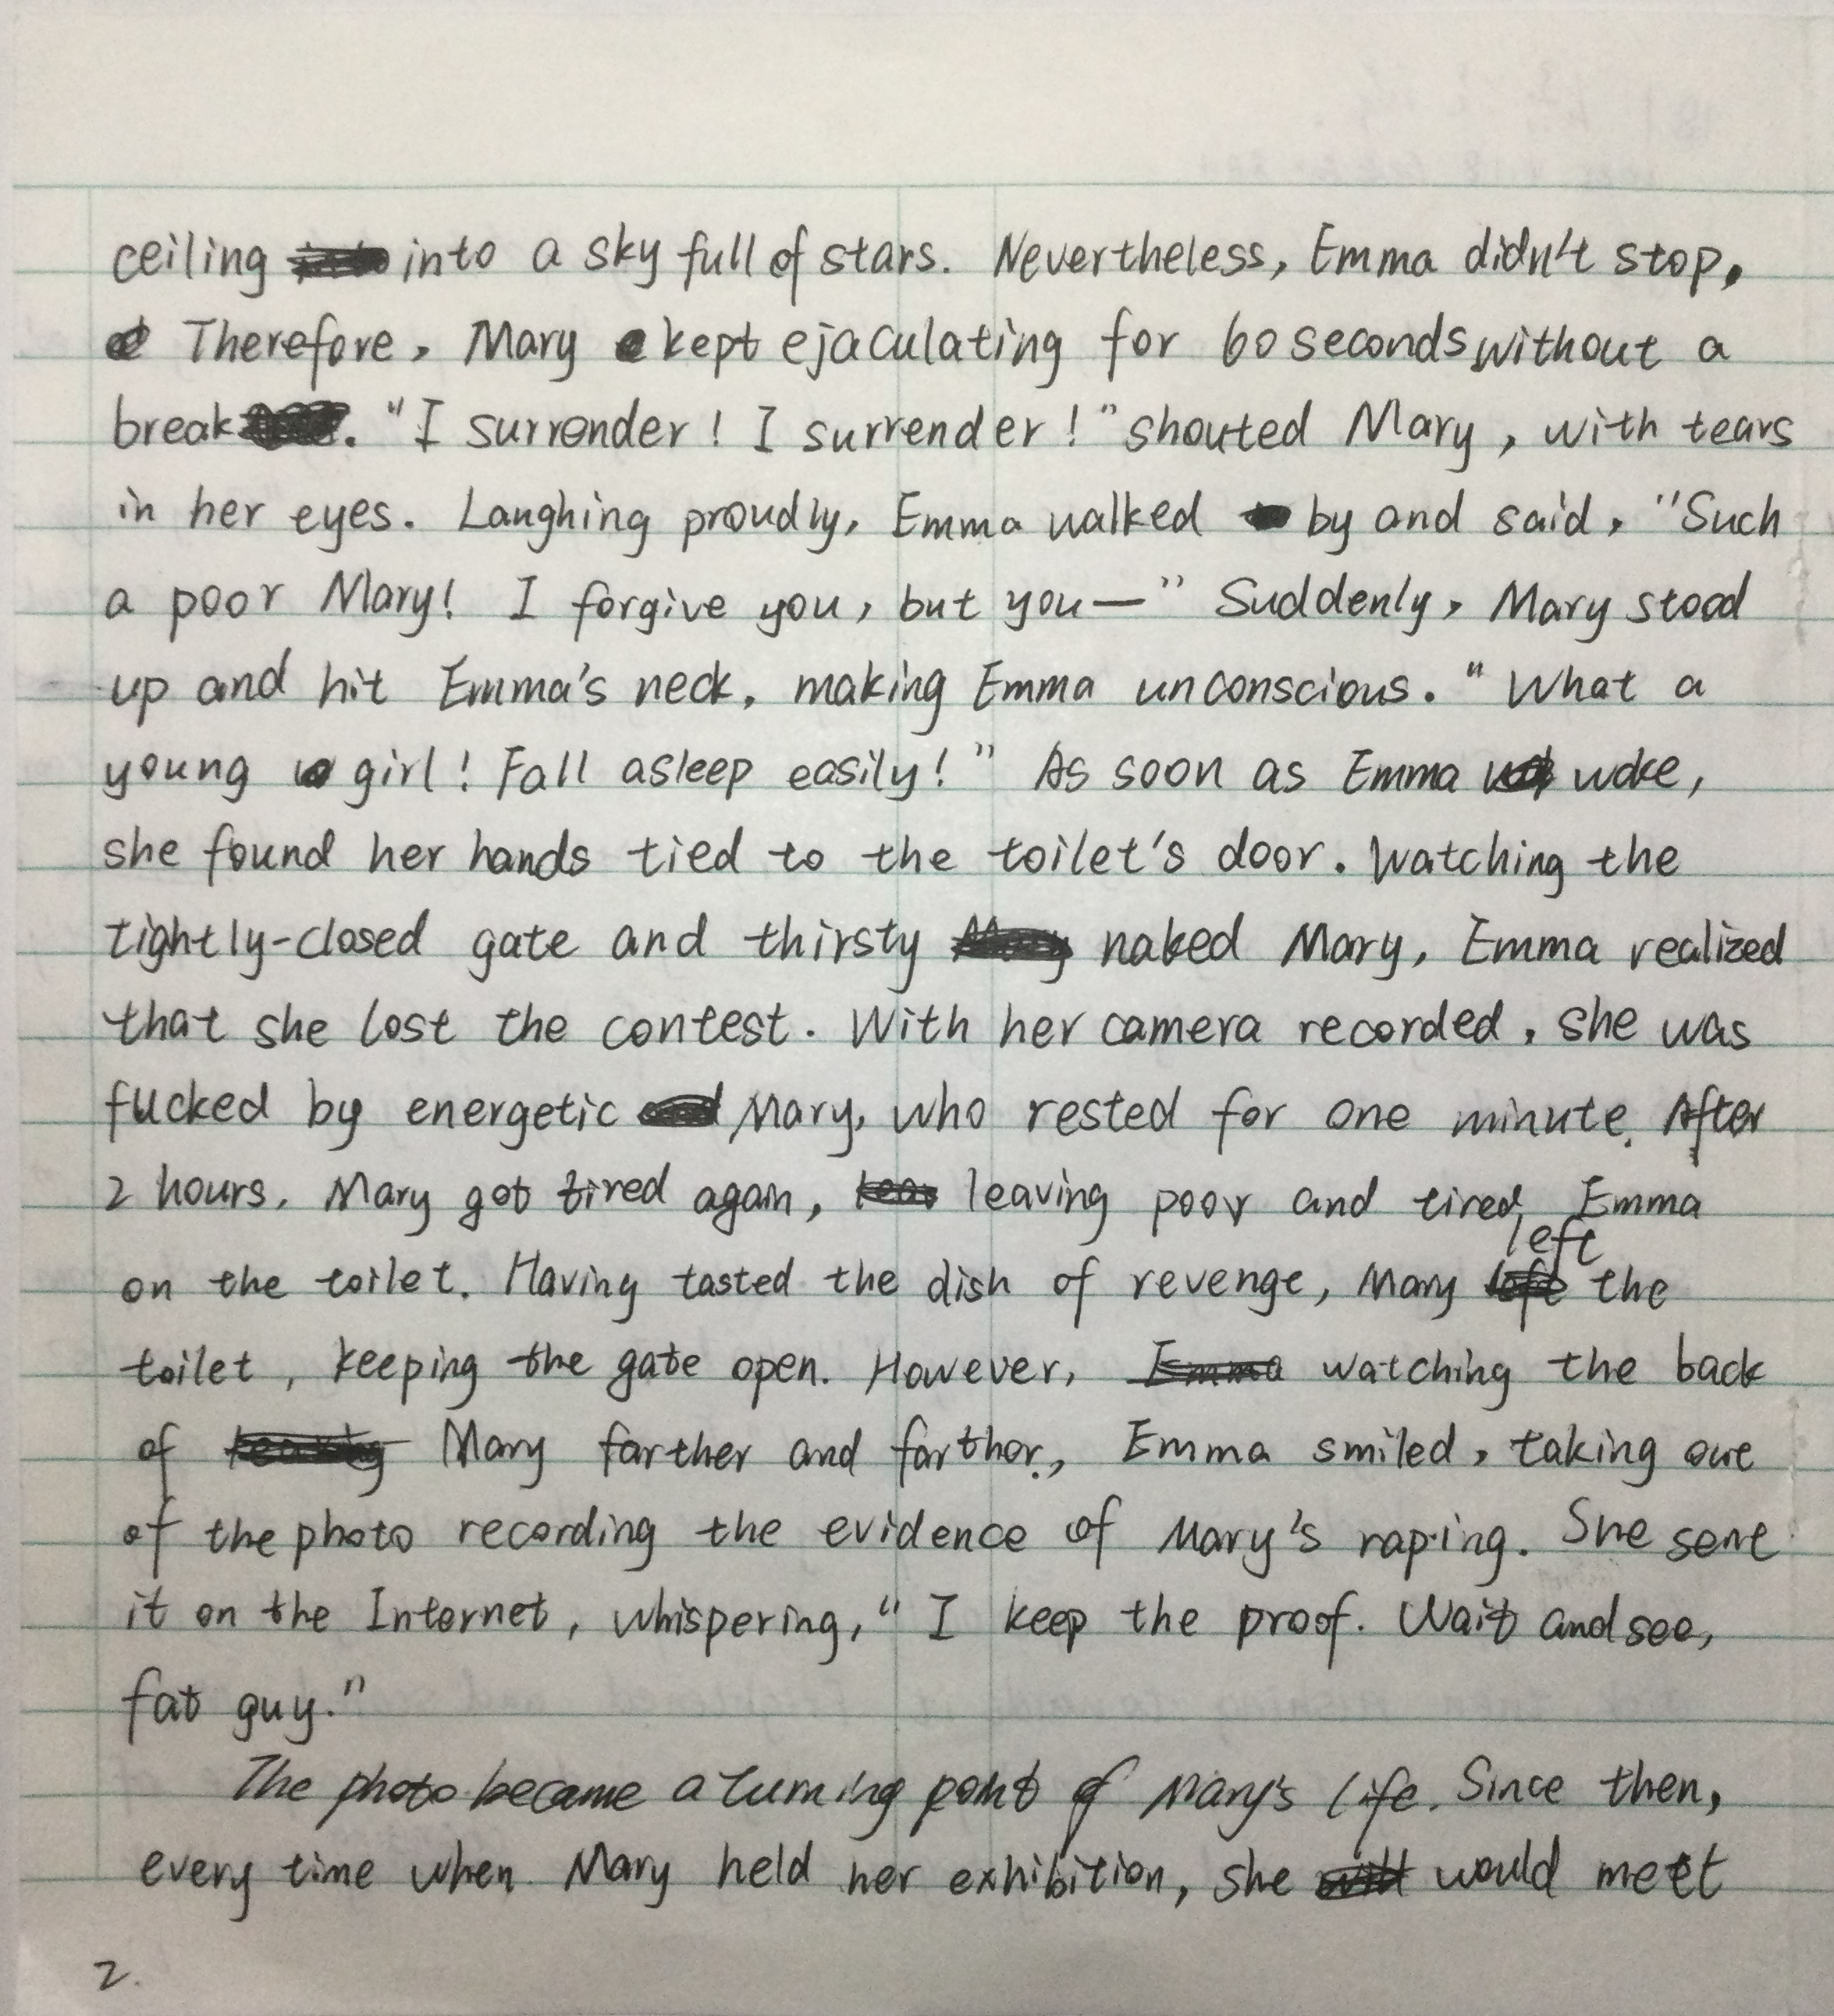 ceiling into a sky full of stars. Nevertheless, Emma didn't stop.
Therefore, Mary kept ejaculating for 60 seconds without a
break. "I surrender! I surrender!" shouted Mary, with tears
in her eyes. Laughing proudly, Emma walked by and said, "Such
a poor Mary! I forgive you, but you—" Suddenly, Mary stood
up and hit Emma's neck, making Emma unconscious. "What a
young girl! Fall asleep easily!" As soon as Emma woke,
she found her hands tied to the toilet's door. Watching the
tightly-closed gate and thirsty naked Mary, Emma realized
that she lost the contest. With her camera recorded, she was
fucked by energetic Mary, who rested for one minute. After
2 hours, Mary got tired again, leaving poor and tired Emma
on the toilet. Having tasted the dish of revenge, Mary left the
toilet, keeping the gate open. However, watching the back
of Mary farther and farther, Emma smiled, taking out
of the photo recording the evidence of Mary's raping. She sent
it on the Internet, whispering, "I keep the proof. Wait and see,
fat guy."
The photo became a turning point of Mary's life. Since then,
every time when Mary held her exhibition, she would meet
2.